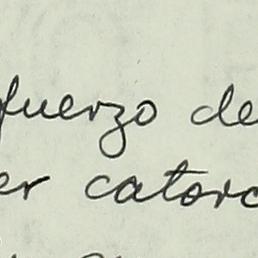 fuerzo de
er catorc